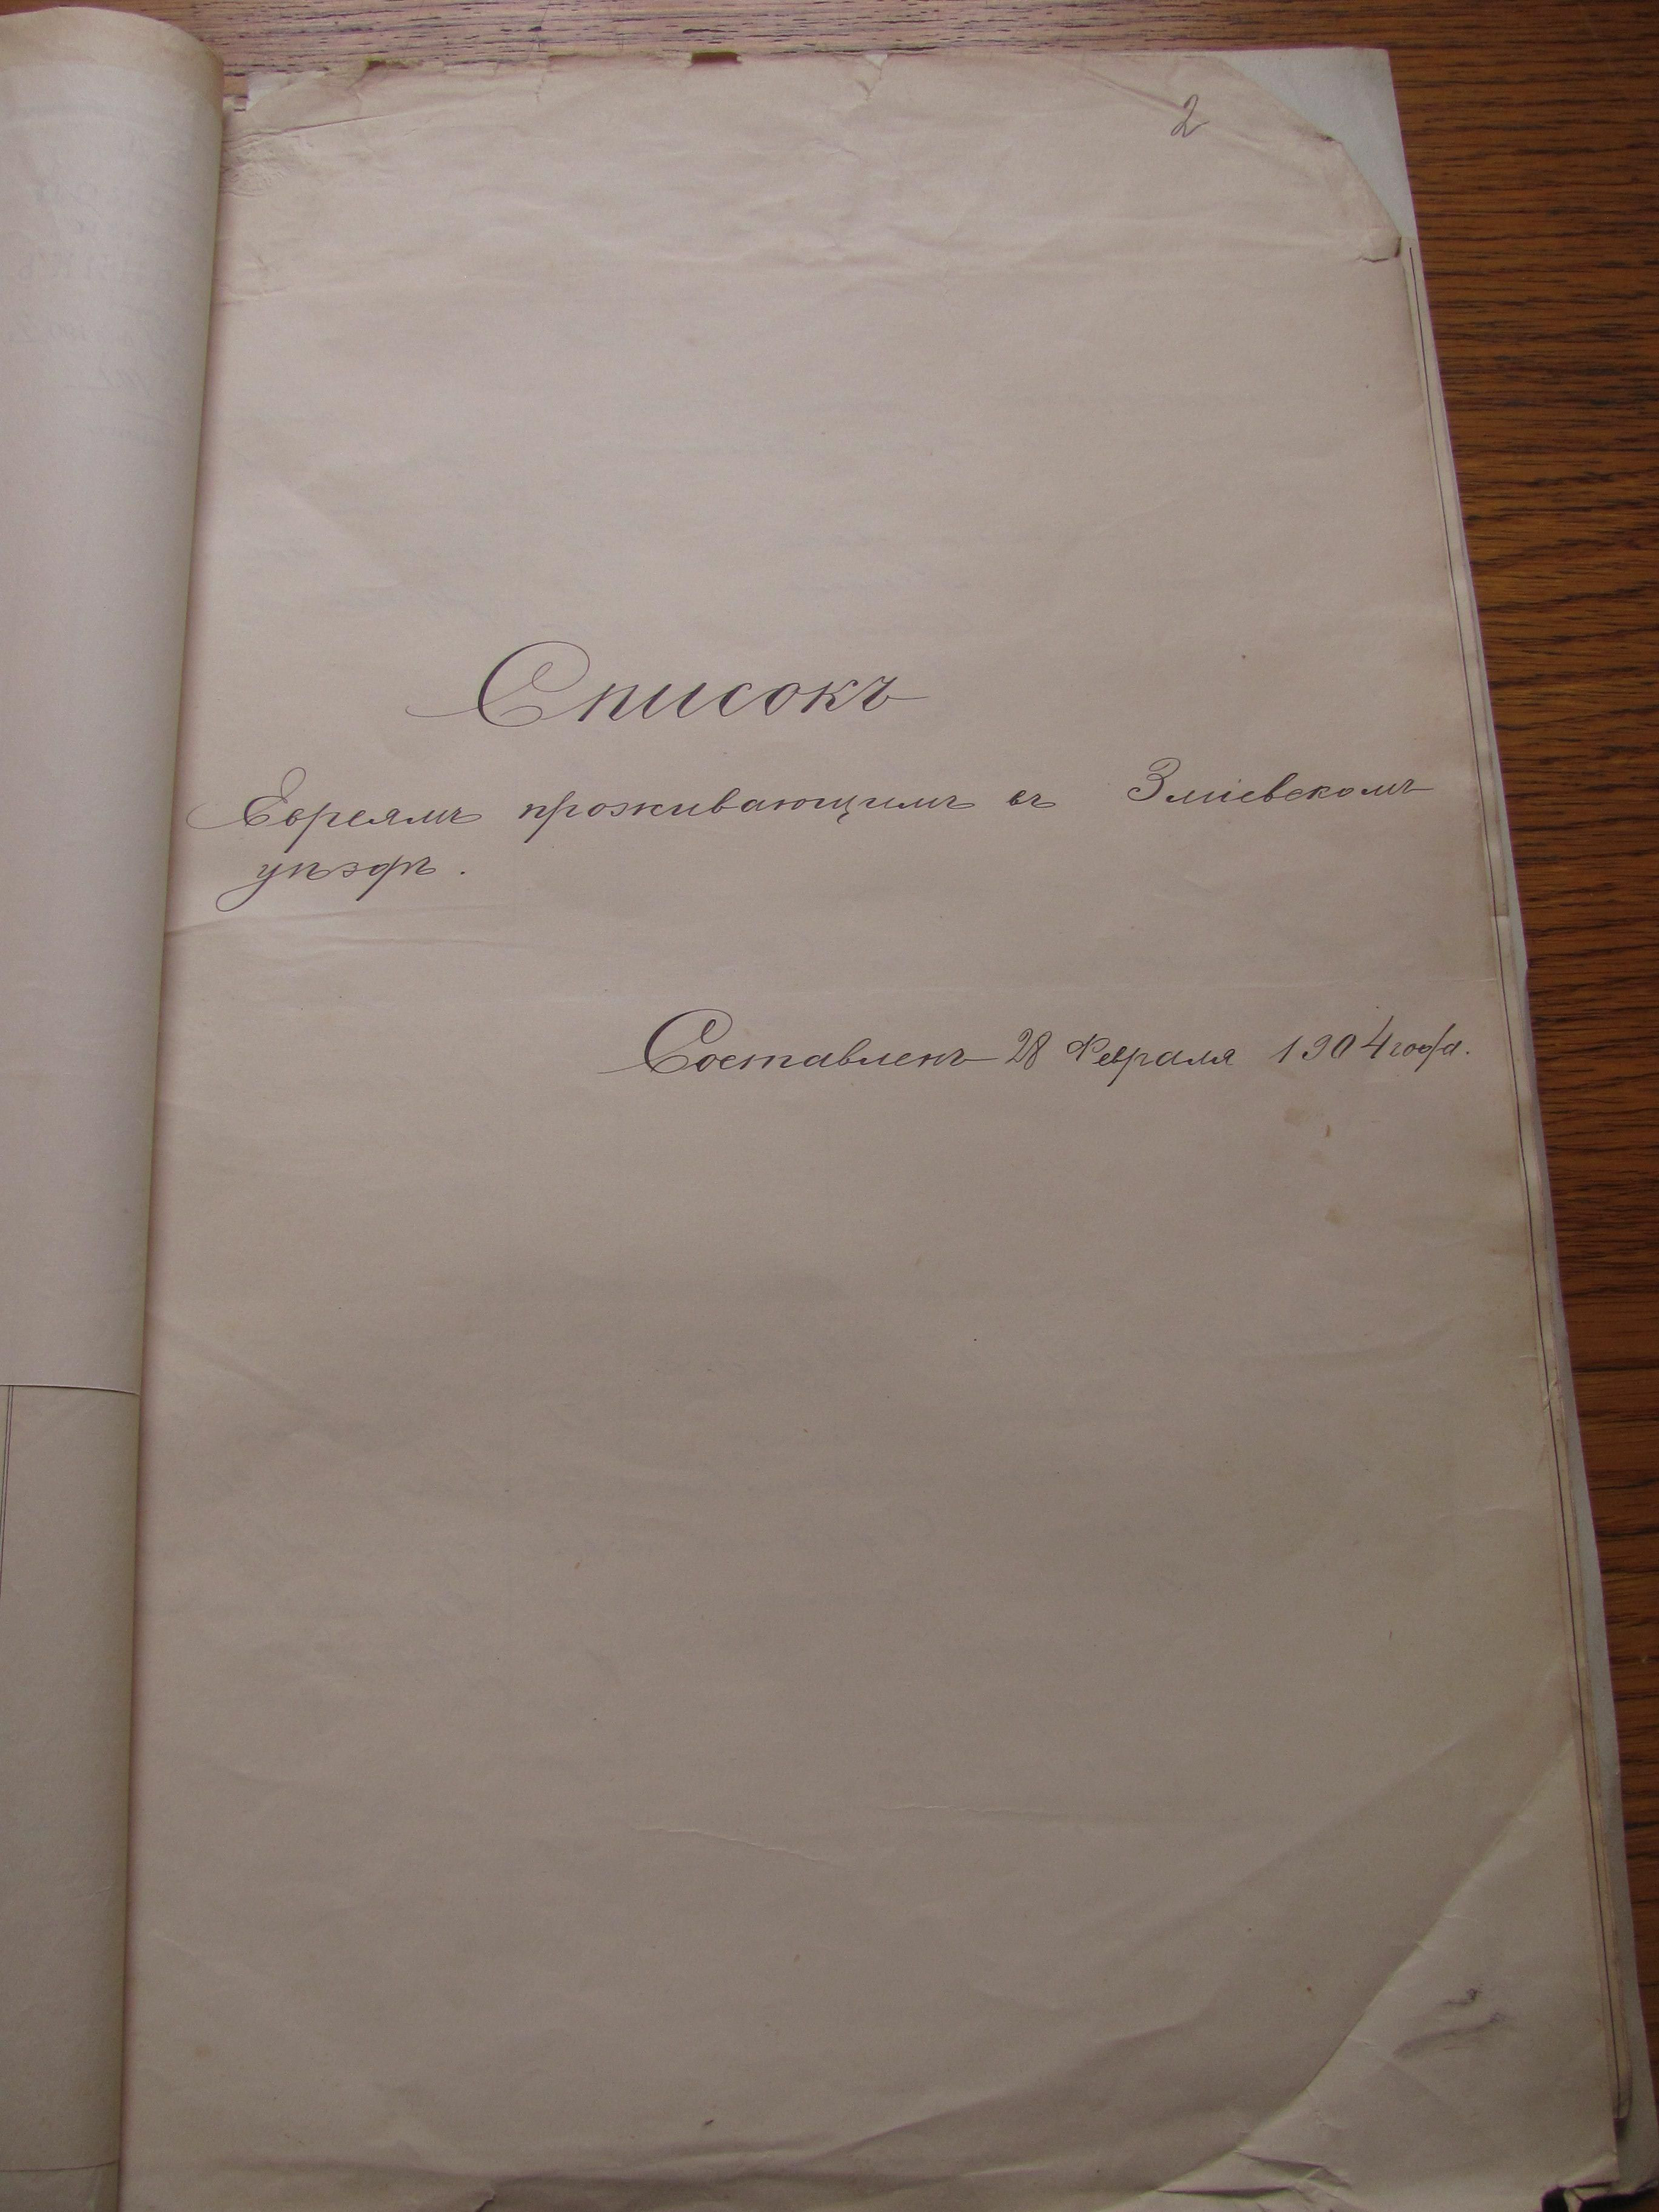 2
Списокъ
Евреямъ проживающимъ въ Зміевскомъ
уѣздѣ.
Составленъ 28 Февраля 1904 года.